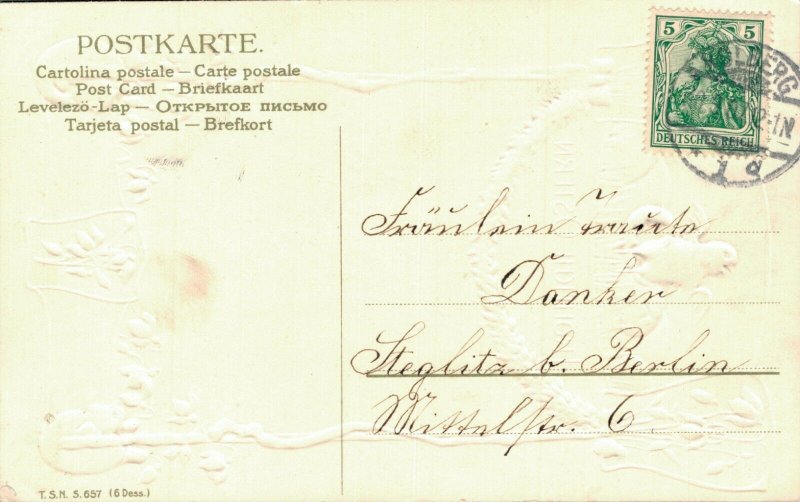 POSTKARTE.
Cartolina postale — Carte postale
Post Card — Briefkaart
Levelező-Lap — Открытое письмо
Tarjeta postal — Brefkort
5 5
DEUTSCHES REICH
1 d
Fräulein Traute
Danker
Steglitz b. Berlin
Mittelstr. 6.
T.S.N. S. 657 (6 Dess.)